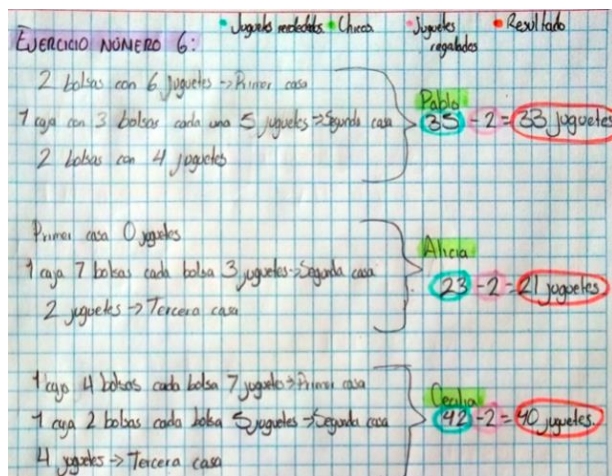 Juguetes recolectados Chicos Juguetes regalados Resultado
EJERCICIO NÚMERO 6:
2 bolsas con 6 juguetes → Primer casa
1 caja con 3 bolsas cada una 5 juguetes → Segunda casa
2 bolsas con 4 juguetes
Pablo
35 - 2 = 33 juguetes
Primer casa 0 juguetes
1 caja 7 bolsas cada bolsa 3 juguetes → Segunda casa
2 juguetes → Tercera casa
Alicia
23 - 2 = 21 juguetes
1 caja 4 bolsas cada bolsa 7 juguetes → Primer casa
1 caja 2 bolsas cada bolsa 5 juguetes → Segunda casa
4 juguetes → Tercera casa
Cecilia
42 - 2 = 40 juguetes.